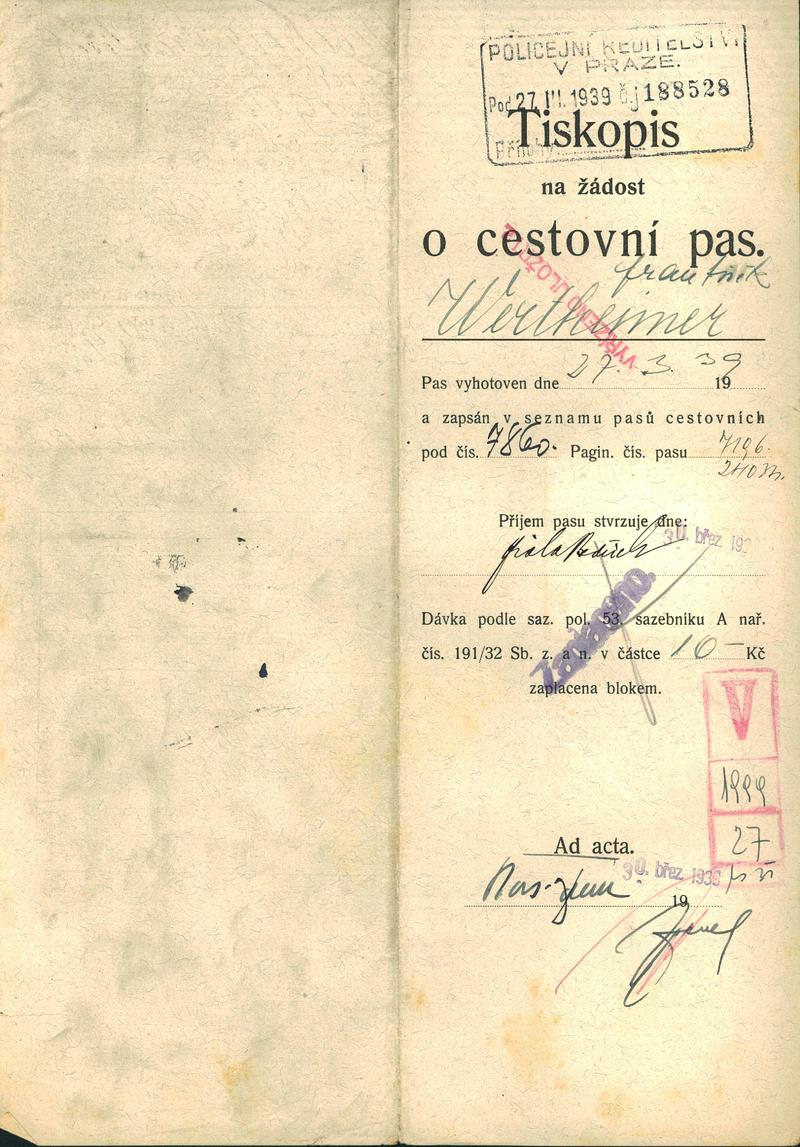 POLICEJNÍ ŘEDITELSTVÍ
V PRAZE.
Pod 27. III. 1939 čj 188528
Přílohy
Tiskopis
na žádost
o cestovní pas.
František
Wertheimer
VYŘÍZENO ULOŽIT
Pas vyhotoven dne 27. 3. 1939
a zapsán v seznamu pasů cestovních
pod čís. 7860. Pagin. čís. pasu 7196.
Příjem pasu stvrzuje dne:
30. břez 193
Zaplaceno.
Dávka podle saz. pol. 53. sazebníku A nař.
čís. 191/32 Sb. z. a n. v částce 10 — Kč
zaplacena blokem.
V
1999
27
Ad acta.
30. břez 1939
19